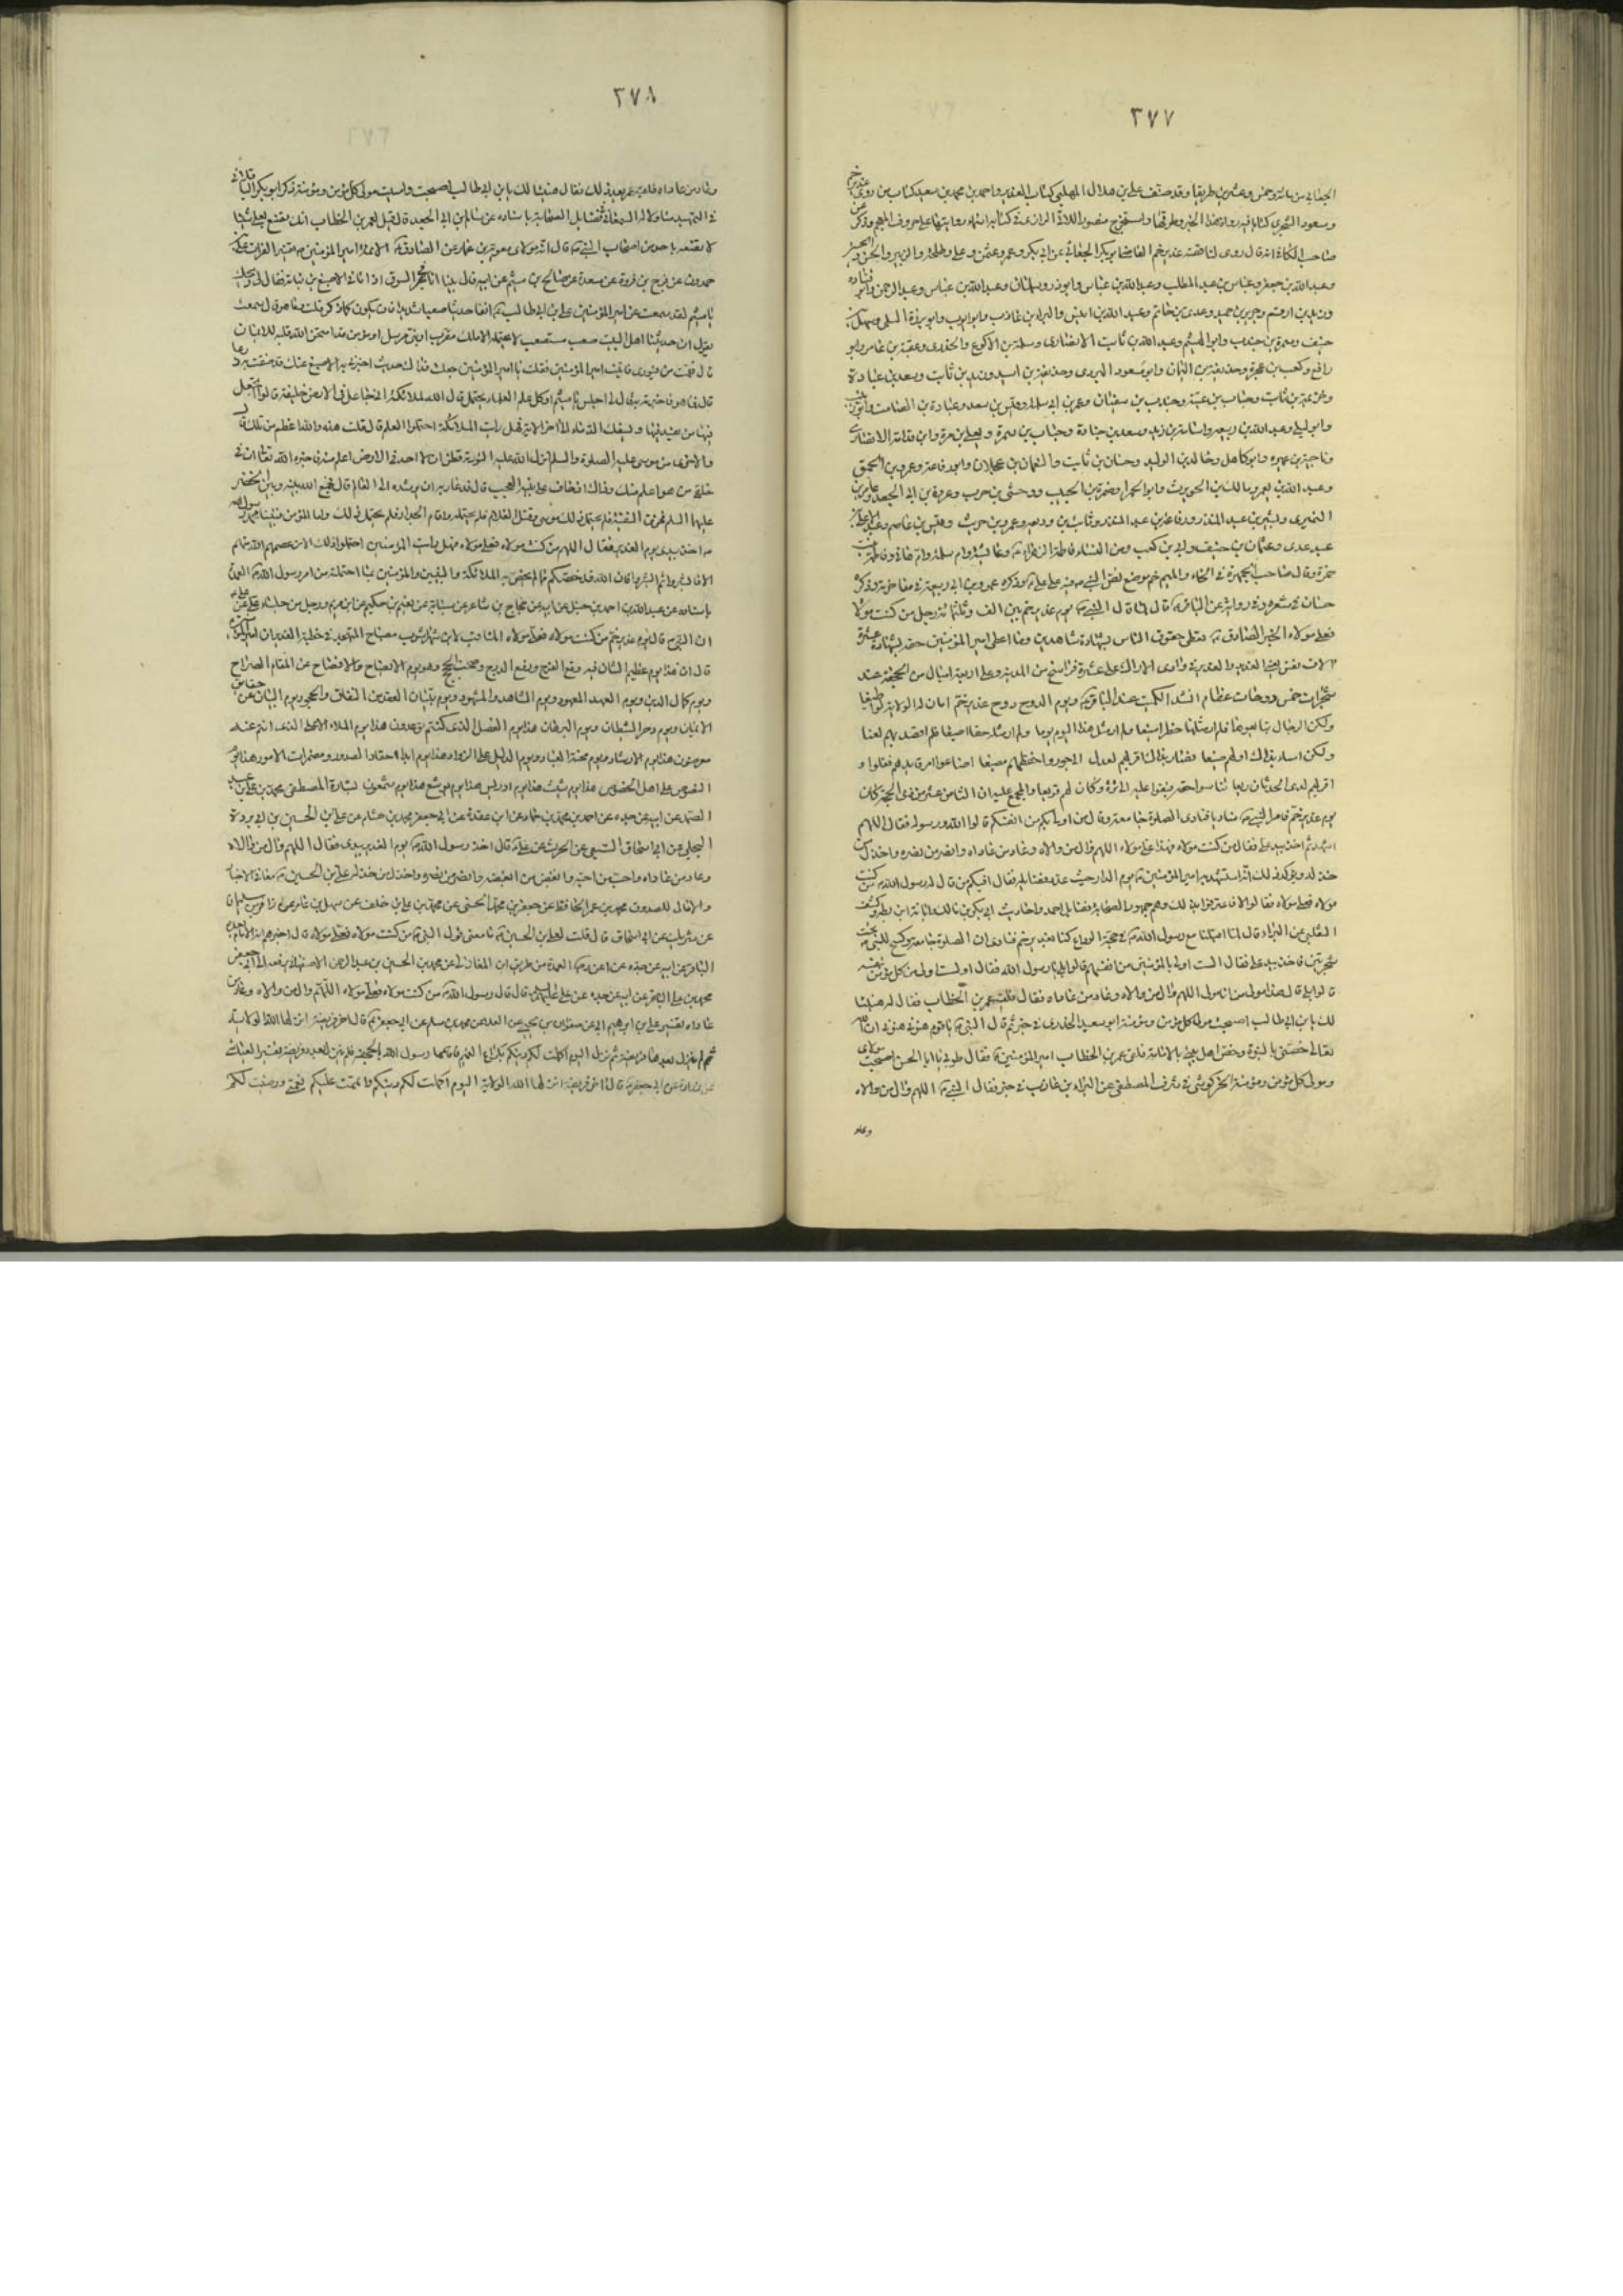 ٣٧٧
الجعابي من مائة وخمس وعشرين طريقا وقد صنف علي بن هلال المهلبي كتاب الغدير واحمد بن محمد بن سعيد كتاب من روى غدير خم
ومسعود الشجري كتابا فيه رواة هذا الخبر وطرقها واستخرج منصور اللاتي الرازي في كتابه اسماء رواتها على حروف المعجم وذكر عن
صاحب الكافي انه قال روى لنا قصة غدير خم القاضي ابو بكر الجعابي عن ابي بكر وعمر وعثمن وعلي وطلحة والزبير والحسن والحسين
وعبد الله بن جعفر وعباس بن عبد المطلب وعبد الله بن عباس وابو ذر وسلمان وعبد الله بن عباس وعبد الرحمن وابو قتادة
وزيد بن ارقم وجرير بن حميد وعدي بن حاتم وعبد الله بن انيس والبراء بن عازب وابو ايوب وابو برزة السلمي وسهل بن
حنيف وسمرة بن جندب وابو الهيثم وعبد الله بن ثابت الانصاري وسلمة بن الاكوع والخدري وعقبة بن عامر وابو
رافع وكعب بن عجرة وحذيفة بن اليمان وابو مسعود البدري وحذيفة بن اسيد وزيد بن ثابت وسعد بن عبادة
وخزيمة بن ثابت وحباب بن عتبة وجندب بن سفيان وعمر بن ابي سلمة وقيس بن سعد وعبادة بن الصامت وابو زينب
وابو ليلى وعبد الله بن ربيعة واسامة بن زيد وسعد بن جنادة وحباب بن سمرة ويعلى بن مرة وابن قدامة الانصاري
وناجية بن عميرة وابو كاهل وخالد بن الوليد وحسان بن ثابت والنعمان بن عجلان وابو رفاعة وعمرو بن الحمق
وعبد الله بن يعمر ومالك بن الحويرث وابو الحمراء وضمرة بن الحبيب ووحشي بن حرب وعروة بن ابي الجعد وعامر بن
النميري وبشير بن عبد المنذر ورفاعة بن عبد المنذر وثابت بن وديعة وعمرو بن حريث وقيس بن عاصم وعبد الاعلى بن
عدي وعثمان بن حنيف وابي بن كعب ومن النساء فاطمة الزهراء ع وعائشة وام سلمة وام هاني وفاطمة بنت
حمزة وقال صاحب الجمهرة في الخاء والميم خم موضع نص النبي ص فيه على علي ع وذكره عمرو بن ابي ربيعة في مفاخرة وذكر
حسان في شعره وفي رواية عن الباقر ع قال لما قال النبي ص يوم غدير خم بين الف وثلثمائة رجل من كنت مولاه
فعلي مولاه الخبر الصادق ع نعطي حقوق الناس بشهادة شاهدين وما اعطي امير المؤمنين حقه بشهادة عشرة
الاف نفس يعني الغدير والغدير في وادي الاراك على عشرة فراسخ من المدينة وعلى اربعة اميال من الجحفة عند
شجرات خمس دوحات عظام انشد الكميت عند الباقر ع ويوم الدوح دوح غدير خم ابان له الولاية لو اطيعا
ولكن الرجال تبايعوها فلم ار مثلها خطرا بيعا ولم ار مثل هذا اليوم يوما ولم ار مثله حقا اضيعا فلم اقصد بهم لعنا
ولكن اساء بذاك اولهم صنيعا فصار بذاك اقربهم لعدل الى جور واحفظهم مضيعا اضاعوا امر قائدهم فضلوا و
اقربهم لدى الحدثان ريعا تناسوا حقه وبغوا عليه بلا ترة وكان لهم قريعا والمجمع عليه ان الثامن عشر من ذي الحجة كان
يوم غدير خم فامر النبي ص مناديا فنادى الصلوة جامعة وقال من اولى بكم من انفسكم قالوا الله ورسوله فقال اللهم
اشهد ثم اخذ بيد علي فقال من كنت مولاه فهذا علي مولاه اللهم وال من والاه وعاد من عاداه وانصر من نصره واخذل من
خذله ويؤكد ذلك انه استشهد به امير المؤمنين ع يوم الدار حيث عدد فضايله فقال افيكم من قال له رسول الله ص من كنت
مولاه فعلي مولاه فقالوا لا فاعترفوا بذلك وهم جمهور الصحابة فضايل احمد واحاديث ابي بكر بن مالك وابانة ابن بطة وكشف
الثعلبي عن البراء قال لما اقبلنا مع رسول الله ص في حجة الوداع كنا بغدير خم فنادى ان الصلوة جامعة وكسح للنبي ص تحت
شجرتين فاخذ بيد علي فقال الست اولى بالمؤمنين من انفسهم قالوا بلى يا رسول الله فقال اولست اولى من كل مؤمن بنفسه
قالوا بلى قال هذا مولى من انا مولاه اللهم وال من والاه وعاد من عاداه فقال فلقيه عمر بن الخطاب فقال له هنيئا
لك يا بن ابي طالب اصبحت مولى كل مؤمن ومؤمنة ابو سعيد الخدري في خبر ثم قال النبي ص يا قوم هنؤني هنؤني ان الله
تعالى خصني بالنبوة وخص اهل بيتي بالامامة فلقي عمر بن الخطاب امير المؤمنين ع فقال طوبى لك يا ابا الحسن اصبحت مولاي
ومولى كل مؤمن ومؤمنة الخركوشي في شرف المصطفى عن البراء بن عازب في خبر فقال النبي ص اللهم وال من والاه
وعاد
٣٧٨
وعاد من عاداه فلقيه عمر بعد ذلك فقال هنيئا لك يا بن ابي طالب اصبحت وامسيت مولى كل مؤمن ومؤمنة ذكر ابو بكر الباقلاني
في التمهيد متاولا له السمعاني في فضايل الصحابة باسناده عن سالم بن ابي الجعد قال قيل لعمر بن الخطاب انك تصنع بعلي شيئا
لا تصنعه باحد من اصحاب النبي ص قال انه مولاي معوية بن عمار عن الصادق ع
حمدون عن فرج بن فروة عن مسعدة عن صالح بن ميثم عن ابيه قال بينا انا في السوق اذ اتاني الاصبغ بن نباتة فقال لي ويحك
يا ميثم لقد سمعت من امير المؤمنين علي بن ابي طالب ع انفا حديثا صعبا شديدا
يقول ان حديثنا اهل البيت صعب مستصعب لا يحتمله الا ملك مقرب او نبي مرسل او مؤمن قد امتحن الله قلبه للايمان
قال فقمت من فوري فاتيت امير المؤمنين فقلت يا امير المؤمنين جعلت فداك حديث اخبرني به الاصبغ عنك قد ضقت به ذرعا
قال فما هو فاخبرته به قال لي اجلس يا ميثم اوكل علم العلماء يحتمل قال الله لملائكته اني جاعل في الارض خليفة قالوا اتجعل
فيها من يفسد فيها ويسفك الدماء الى اخر الاية فهل رايت الملائكة احتملوا العلم قال قلت هذه والله اعظم من تلك قال
والاخرى من موسى عليه الصلوة والسلم انزل الله عليه التورية فظن ان لا احد في الارض اعلم منه فاخبره الله تعالى ان في
خلقي من هو اعلم منك وذاك اذ خاف على نبيه العجب قال فدعا ربه ان يرشده الى العالم قال فجمع الله بينه وبين الخضر
عليهما السلم فخرق السفينة فلم يحتمل ذلك موسى وقتل الغلام فلم يحتمله واقام الجدار فلم يحتمل ذلك واما المؤمن فنبينا محمد رسول الله
ص اخذ بيدي يوم الغدير فقال اللهم من كنت مولاه فعلي مولاه فهل رايت المؤمنين احتملوا ذلك الا من عصمهم الله منهم
الا فابشروا ثم ابشروا فان الله قد خصكم بما لم يخص به الملائكة والنبيين والمؤمنين بما احتملتم من امر رسول الله ص
باسناده عن عبد الله بن احمد بن حنبل عن ابيه عن حجاج بن شاعر عن شبابة عن نعيم بن حكيم عن ابي مريم ورجل من جلساء علي عن علي
ان النبي ص قال يوم غدير خم من كنت مولاه فعلي مولاه المناقب لابن شهراشوب مصباح المتهجد في خطبة الغدير ان امير المؤمنين
قال ان هذا يوم عظيم الشان فيه وقع الفرج ورفع الدرج وصحت الحجج وهو يوم الايضاح والافصاح عن المقام الصراح
ويوم كمال الدين ويوم العهد المعهود ويوم الشاهد والمشهود ويوم تبيان العقود عن النفاق والجحود ويوم البيان عن حقايق
الايمان ويوم دحر الشيطان ويوم البرهان هذا يوم الفصل الذي كنتم توعدون هذا يوم الملاء الاعلى الذي انتم عنه
معرضون هذا يوم الارشاد ويوم محنة العباد ويوم الدليل على الرواد هذا يوم ابدى احقاد الصدور ومضمرات الامور هذا يوم
النصوص على اهل الخصوص هذا يوم شيث هذا يوم ادريس هذا يوم يوشع هذا يوم شمعون بشارة المصطفى محمد بن علي بن عبد
الصمد عن ابيه عن جده عن احمد بن محمد بن عماد عن ابن عقدة عن ابي جعفر محمد بن هشام عن علي بن الحسين بن ابي بردة
البجلي عن ابي اسحاق السبيعي عن الحرث عن علي ع قال اخذ رسول الله ص يوم الغدير بيدي فقال اللهم وال من والاه
وعاد من عاداه واحب من احبه وابغض من ابغضه وانصر من نصره واخذل من خذله علي بن الحسين ع معاني الاخبار
والامالي للصدوق محمد بن عمر الحافظ عن جعفر بن محمد الحسني عن محمد بن علي بن خلف عن سهل بن عامر عن زافر بن سليمان
عن شريك عن ابي اسحاق قال قلت لعلي بن الحسين ع ما معنى قول النبي ص من كنت مولاه فعلي مولاه قال اخبرهم انه الامام بعده
الباقر عن ابيه عن جده عن العمدة من طريق ابن المغازلي عن محمد بن الحسين بن عبد الرحمن الاصفهاني يرفعه الى ابي جعفر
محمد بن علي الباقر عن ابيه عن جده عن علي عليهم السلم قال قال رسول الله ص من كنت مولاه فعلي مولاه اللهم وال من والاه وعاد من
عاداه تفسير علي بن ابراهيم ابي عن صفوان بن يحيى عن العلاء عن محمد بن مسلم عن ابي جعفر ع قال اخر فريضة انزلها الله الولاية
ثم لم ينزل بعدها فريضة ثم نزل اليوم اكملت لكم دينكم بكراع الغميم فاقامها رسول الله ص بالجحفة فلم ينزل بعدها فريضة تفسير العياشي
عن زرارة عن ابي جعفر ع قال اخر فريضة انزلها الله الولاية اليوم اكملت لكم دينكم واتممت عليكم نعمتي ورضيت لكم